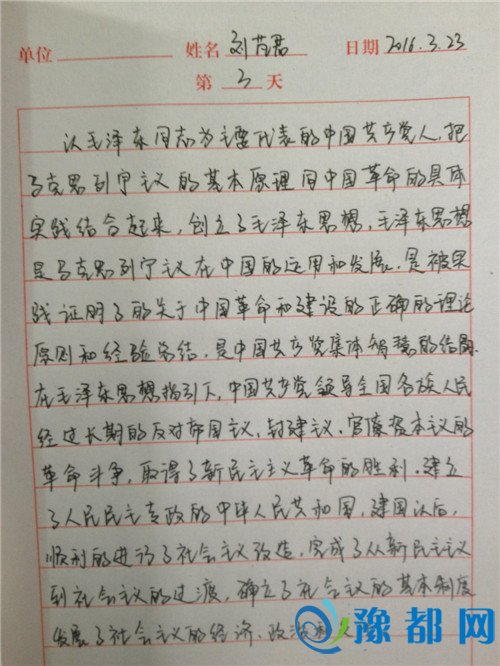 单位 姓名 刘芃君 日期 2016.3.23
第 3 天
以毛泽东同志为主要代表的中国共产党人,把
马克思列宁主义的基本原理同中国革命的具体
实践结合起来,创立了毛泽东思想,毛泽东思想
是马克思列宁主义在中国的运用和发展,是被实
践证明了的关于中国革命和建设的正确的理论
原则和经验总结,是中国共产党集体智慧的结晶
在毛泽东思想指引下,中国共产党领导全国各族人民
经过长期的反对帝国议、封建议、官僚资本议的
革命斗争,取得了新民主主义革命的胜利,建立
了人民民主专政的中华人民共和国,建国以后,
顺利的进行了社会主义改造,完成了从新民主主义
到社会主义的过渡,确立了社会主义的基本制度
发展了社会主义的经济、政治和
豫都网